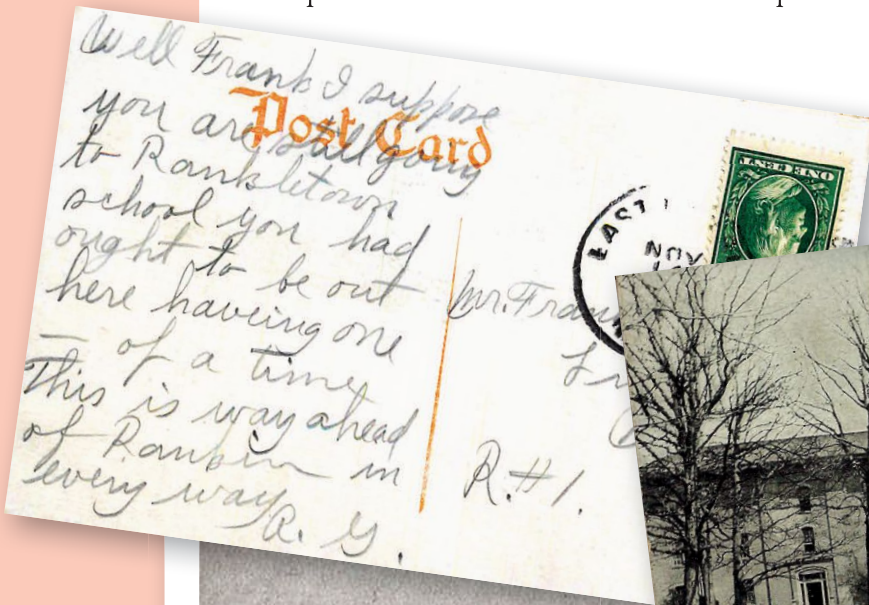 Well Frank I suppose
you are still going
to Rankletown
school you had
ought to be out
here haveing one
— of a time
This is way ahead
of Rankin in
every way
R. G.
Post Card
Mr. Frank
R. #1.
EAST
NOV
ONE CENT